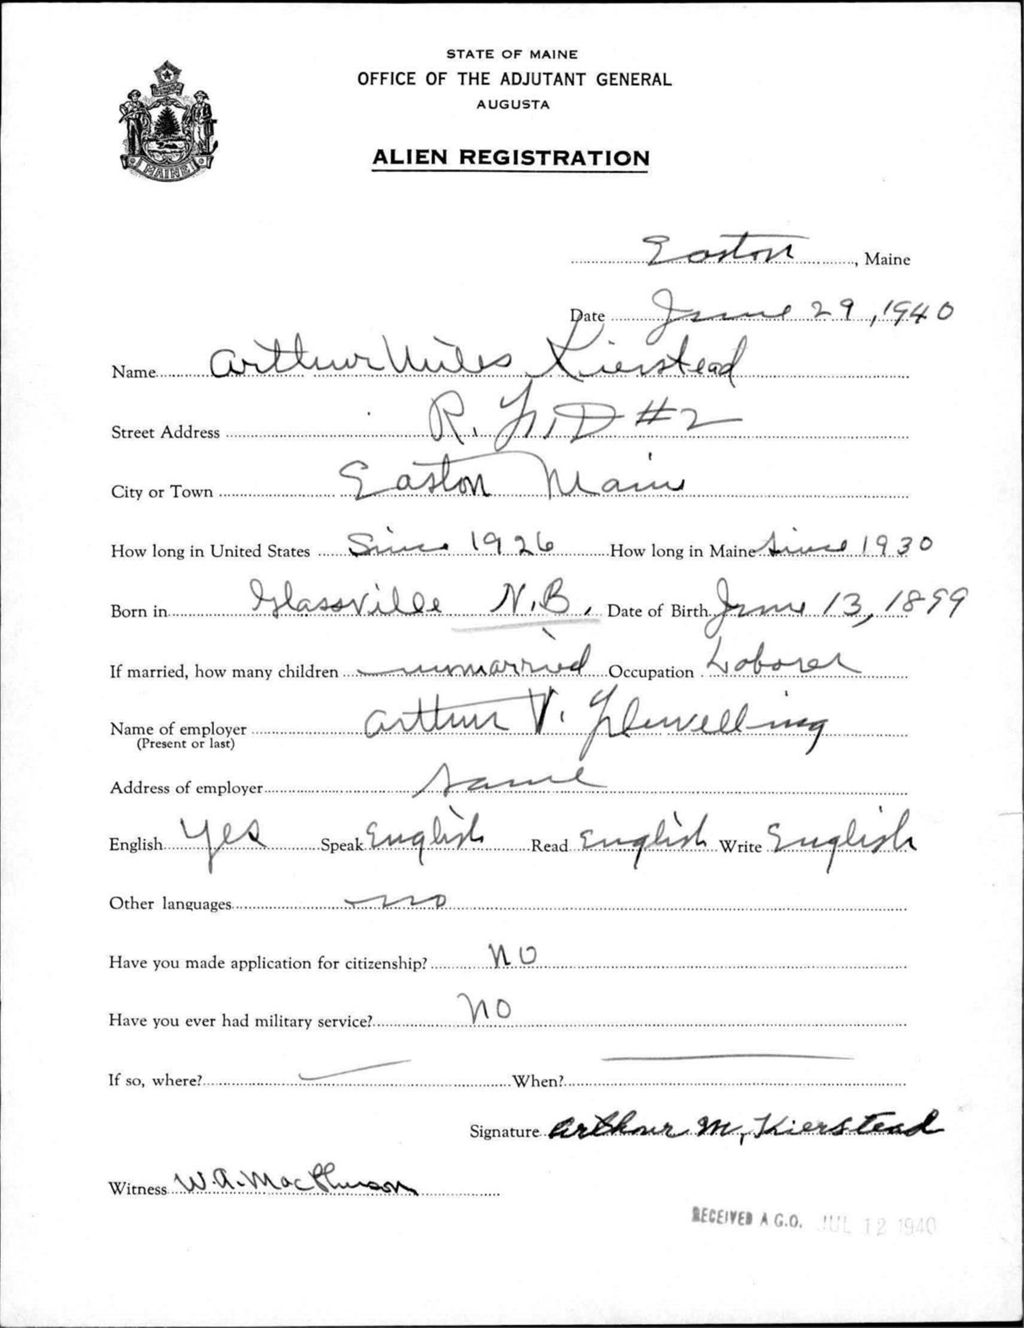 STATE OF MAINE
OFFICE OF THE ADJUTANT GENERAL
AUGUSTA
ALIEN REGISTRATION
MAINE
Easton, Maine
Date June 29, 1940
Name Arthur Miles Kierstead
Street Address R. F. D #2
City or Town Easton Maine
How long in United States Since 1926 How long in Maine Since 1930
Born in Glassville N.B. Date of Birth June 13, 1899
If married, how many children unmarried Occupation Laborer
Name of employer Arthur V. Flewelling
(Present or last)
Address of employer Same
English Yes Speak English Read English Write English
Other languages no
Have you made application for citizenship? No
Have you ever had military service? No
If so, where? When?
Signature Arthur M, Kierstead
Witness W. A. MacPherson
RECEIVED A.G.O. JUL 12 1940